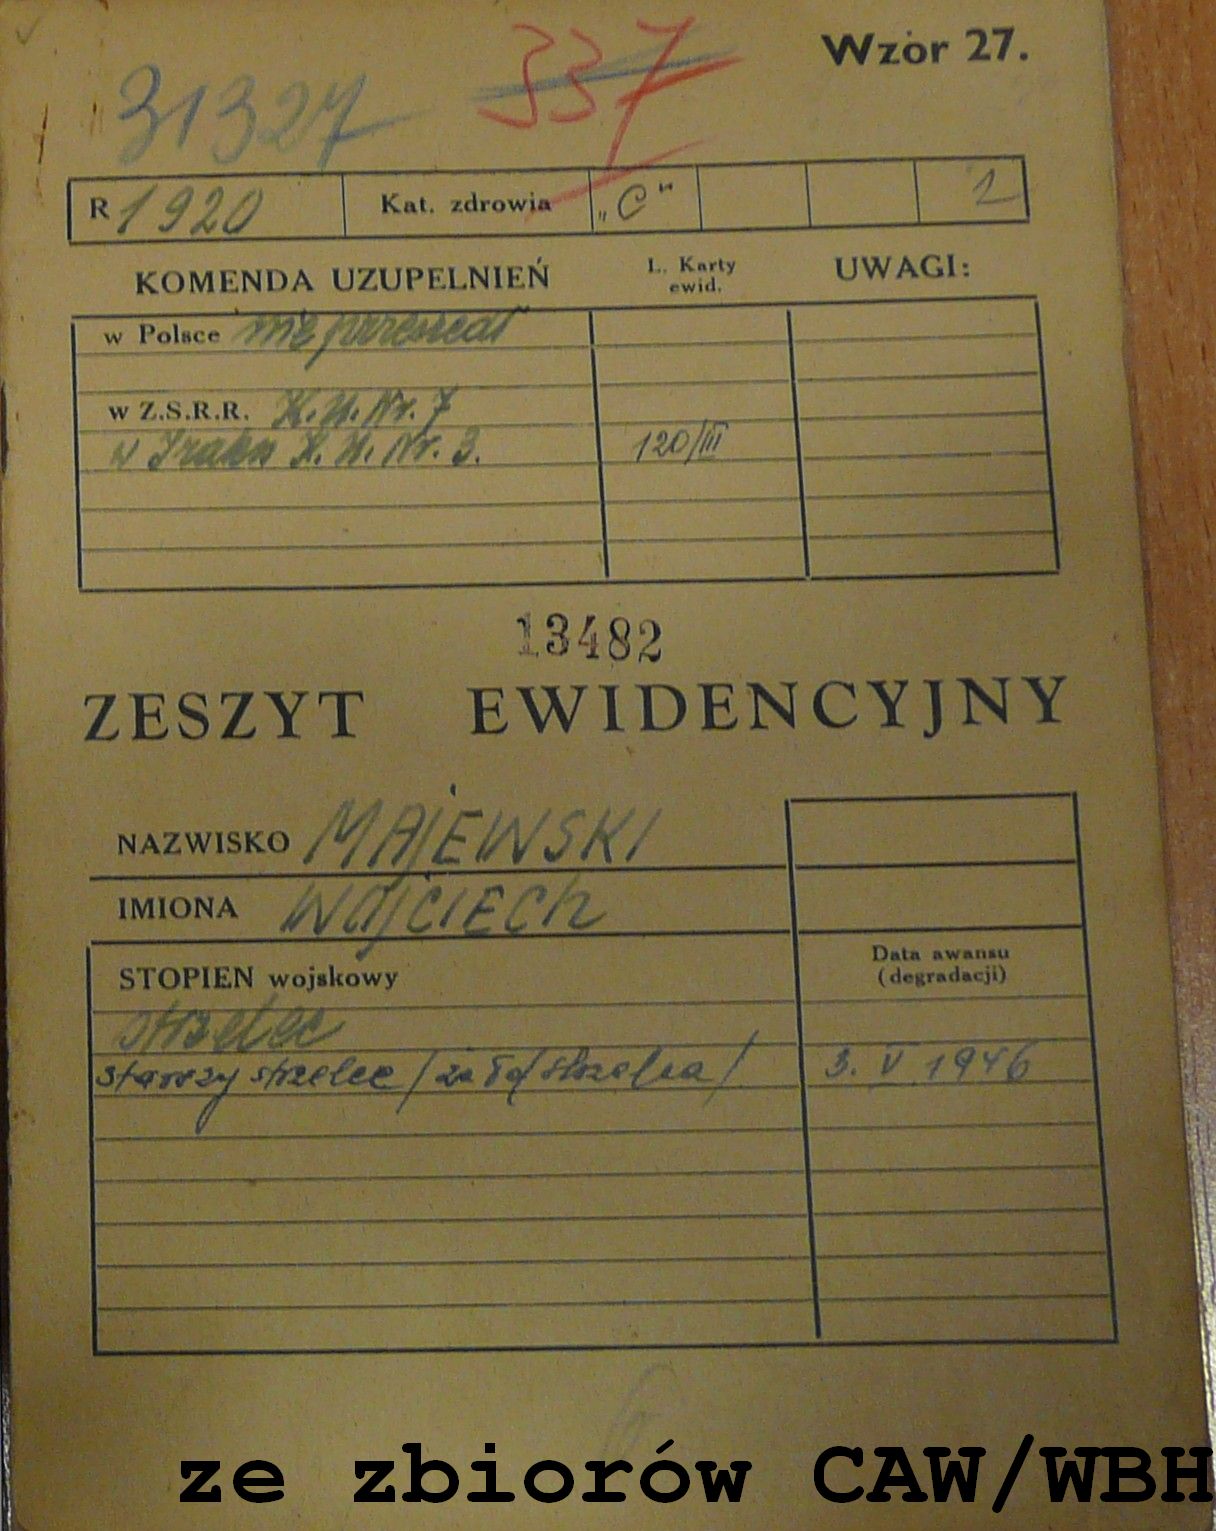 Wzór 27.
31327
337
R 1920 Kat. zdrowia „C" 1
KOMENDA UZUPELNIEŃ L. Karty ewid. UWAGI:
w Polsce nie
w Z.S.R.R. K.U. Nr. 7
w Iraku K.U. Nr. 3. 120/III
13482
ZESZYT EWIDENCYJNY
NAZWISKO MAJEWSKI
IMIONA WOJCIECH
STOPIEN wojskowy Data awansu
(degradacji)
strzelec
starszy strzelec 3. V 1946
ze zbiorów CAW/WBH